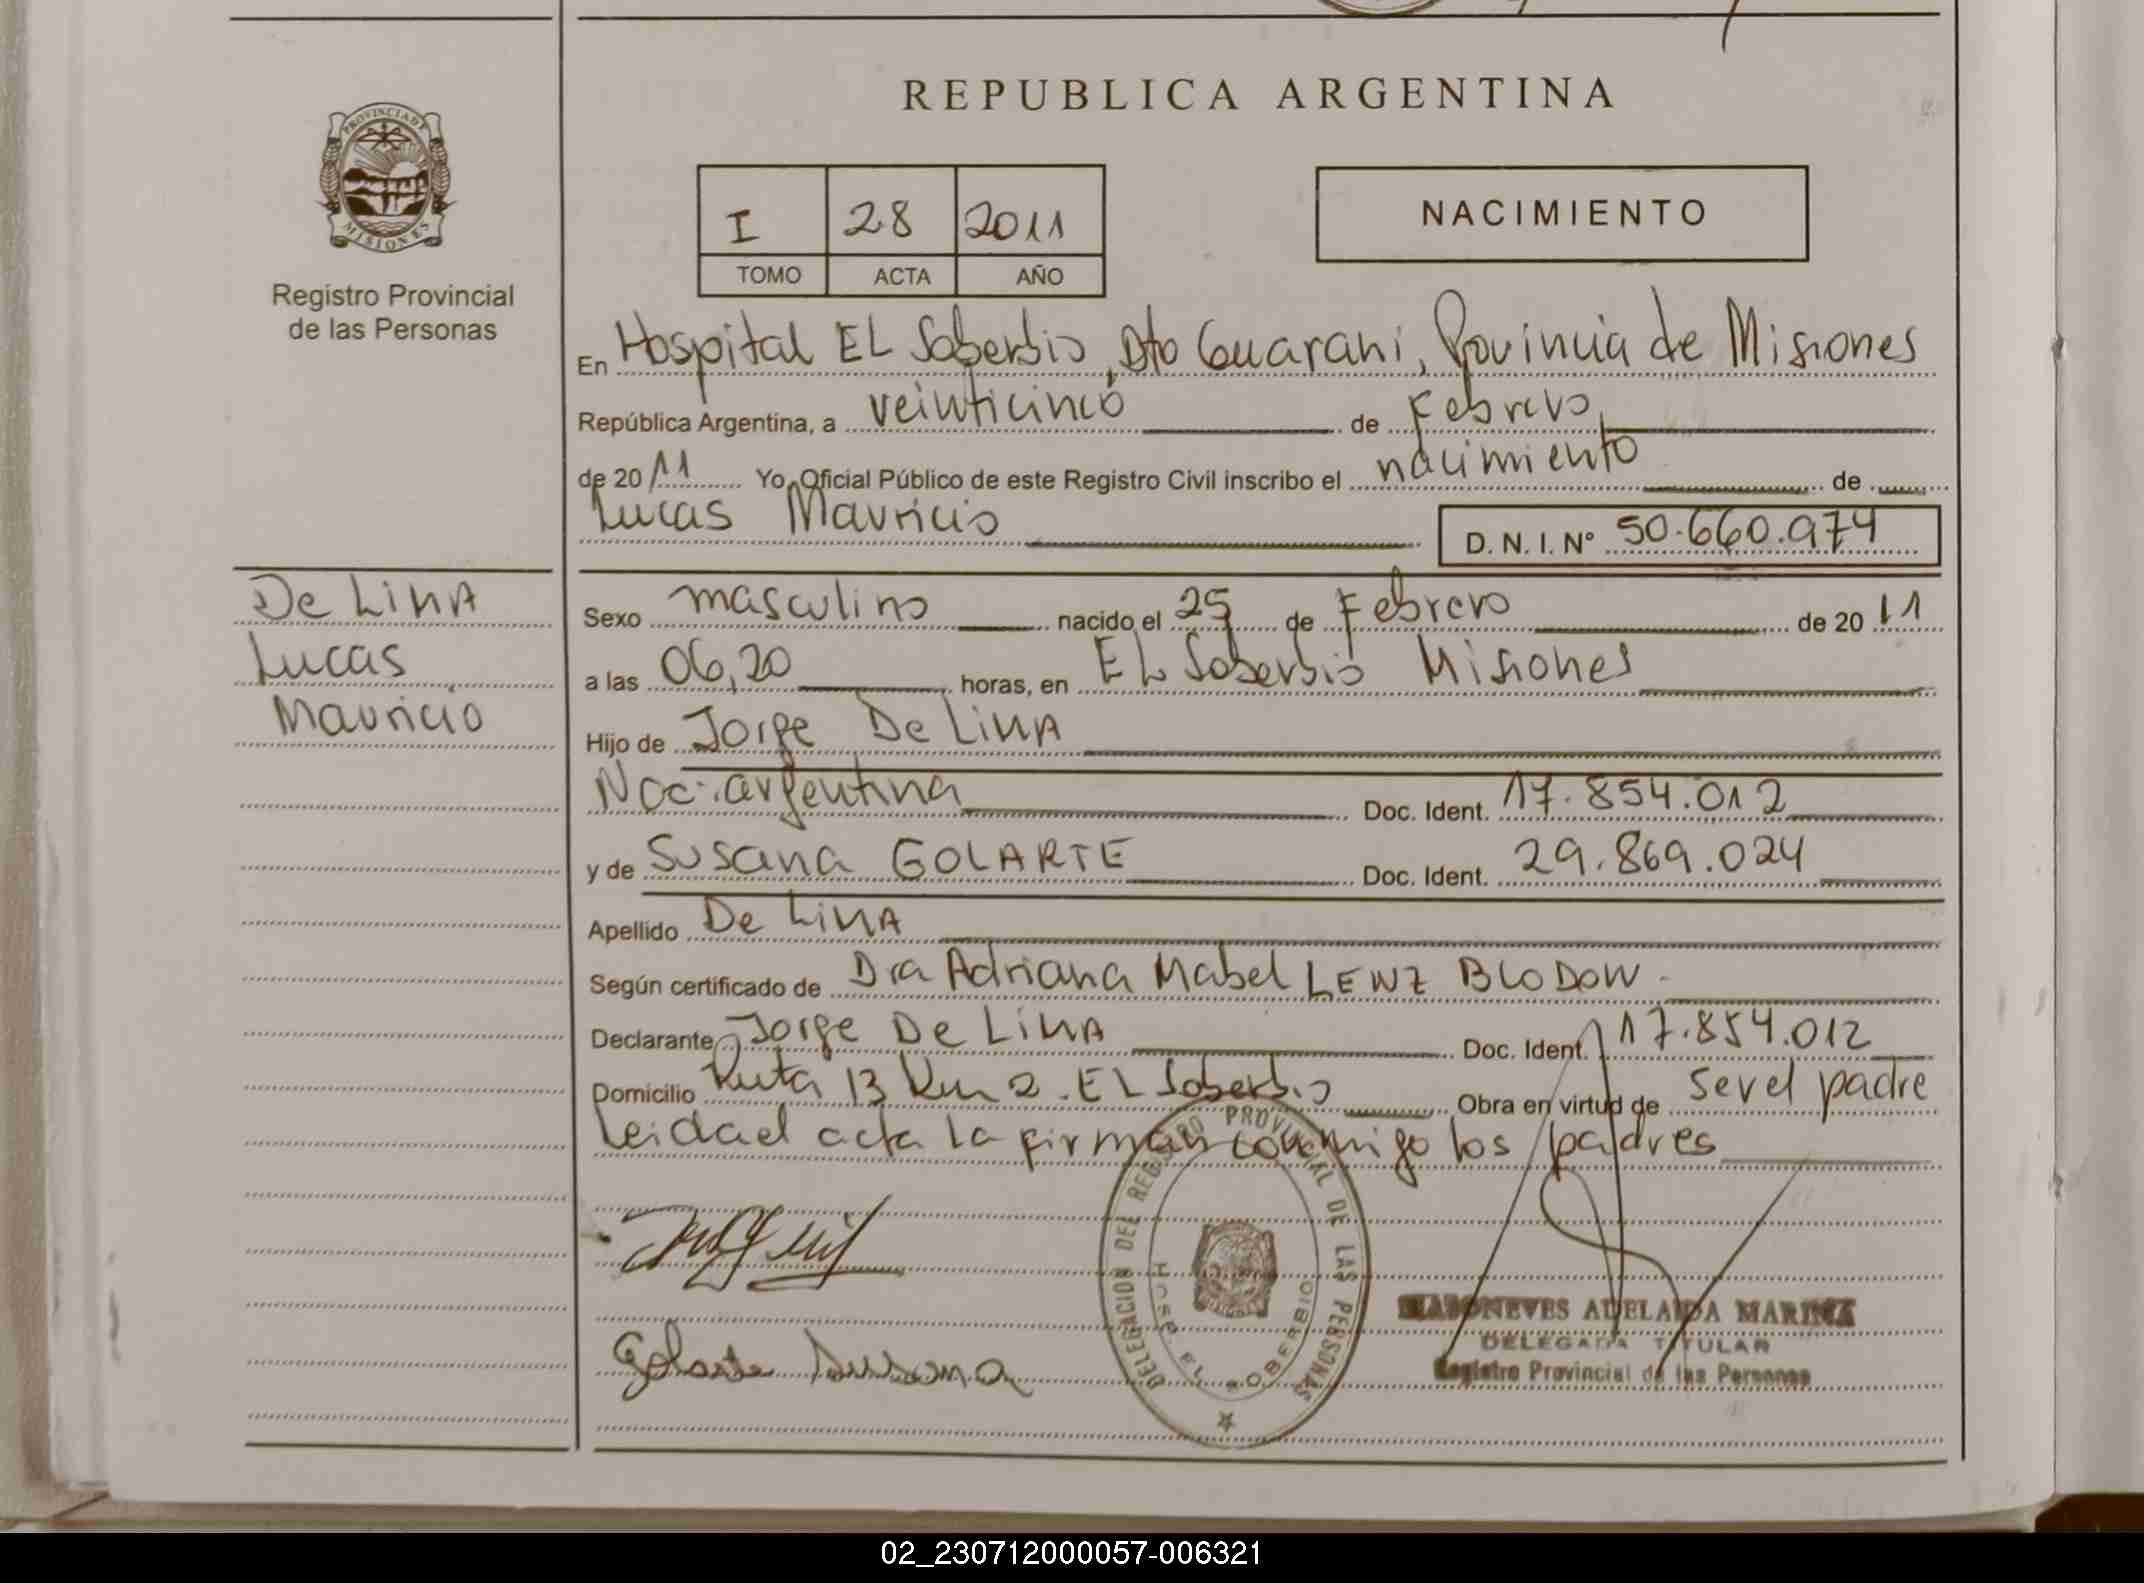 REPUBLICA ARGENTINA
PROVINCIA DE
MISIONES
Registro Provincial
de las Personas
I 28 2011
TOMO ACTA AÑO
NACIMIENTO
En Hospital EL Soberbio, Dto Guarani, Provincia de Misiones
República Argentina, a veinticinco de Febrero
de 20 11 Yo Oficial Público de este Registro Civil inscribo el nacimiento de
Lucas Mauricio D. N. I. Nº 50.660.974
De LimA
Lucas
Mauricio
Sexo masculino nacido el 25 de Febrero de 20 11
a las 06,20 horas, en EL Soberbio Misiones
Hijo de Jorge De LimA
Nac. argentina Doc. Ident. 17.854.012
y de Susana GOLARTE Doc. Ident. 29.869.024
Apellido De LimA
Según certificado de Dra Adriana Mabel LENZ BLODOW.
Declarante Jorge De LimA Doc. Ident. 17.854.012
Domicilio Ruta 13 Km 2. EL Soberbio Obra en virtud de ser el padre
Leida el acta la firman conmigo los padres
DELEGACION DEL REGISTRO PROVINCIAL DE LAS PERSONAS
EL SOBERBIO
Golarte Susana
ADELAIDA MARINA
DELEGADA TITULAR
Registro Provincial de las Personas
02_230712000057-006321